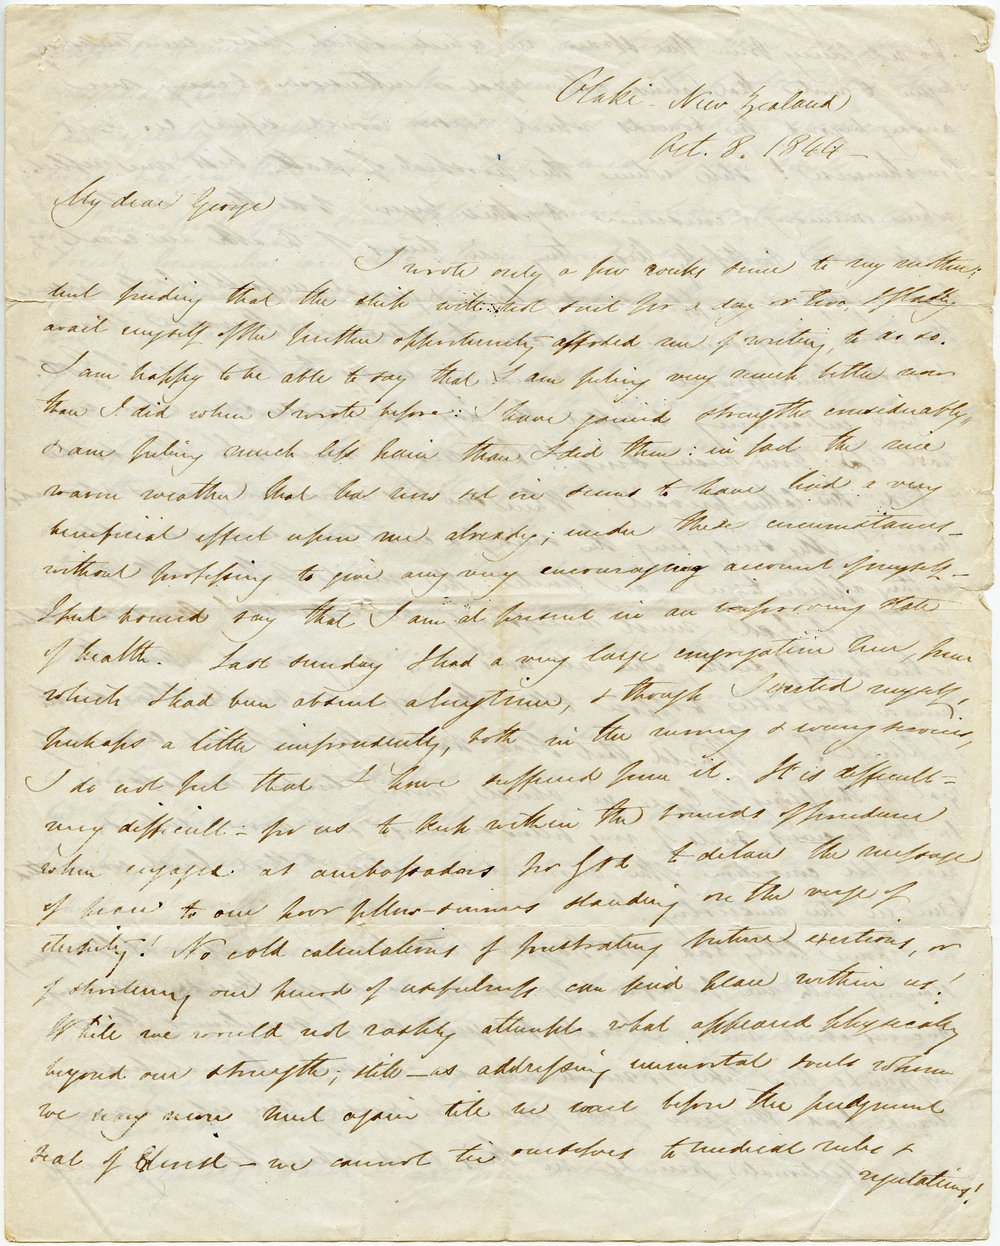 Otaki - New Zealand
Oct. 8. 1844 -
My dear George
I wrote only a few weeks since to my mother;
but finding that the ship will not sail for a day or two, I gladly
avail myself of the further opportunity afforded me of writing, to do so.
I am happy to be able to say that I am feeling very much better now
than I did when I wrote before: I have gained strength considerably,
& am feeling much less pain than I did then: in fact the nice
warm weather that has now set in seems to have had a very
beneficial effect upon me already; under these circumstances -
without professing to give any very encouraging account of myself -
I feel bound say that I am at present in an improving state
of health. Last Sunday I had a very large congregation here, from
which I had been absent a long time, & though I exerted myself,
perhaps a little imprudently, both in the morning & evening services,
I do not feel that I have suffered from it. It is difficult -
very difficult - for us to keep within the bounds of prudence
when engaged as ambassadors for God to declare the message
of peace to our poor fellow-sinners standing on the verge of
eternity! No cold calculations of frustrating future exertions, or
of shortening our period of usefulness can find place within us!
While we would not rashly attempt what appeared physically
beyond our strength; still - as addressing immortal souls whom
we may never meet again till we meet before the judgment
seat of Christ - we cannot tie ourselves to medical rules &
regulations!